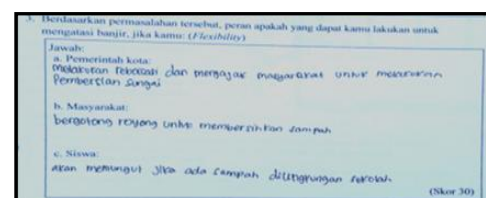 3. Berdasarkan permasalahan tersebut, peran apakah yang dapat kamu lakukan untuk
mengatasi banjir, jika kamu: (Flexibility)
Jawab:
a. Pemerintah kota:
melakukan reboisasi dan mengajak masyarakat untuk melakukan
Pembersian Sungai
b. Masyarakat:
bergotong royong untuk membersihkan sampah
c. Siswa:
akan memungut jika ada sampah dilingkungan sekolah
(Skor 30)